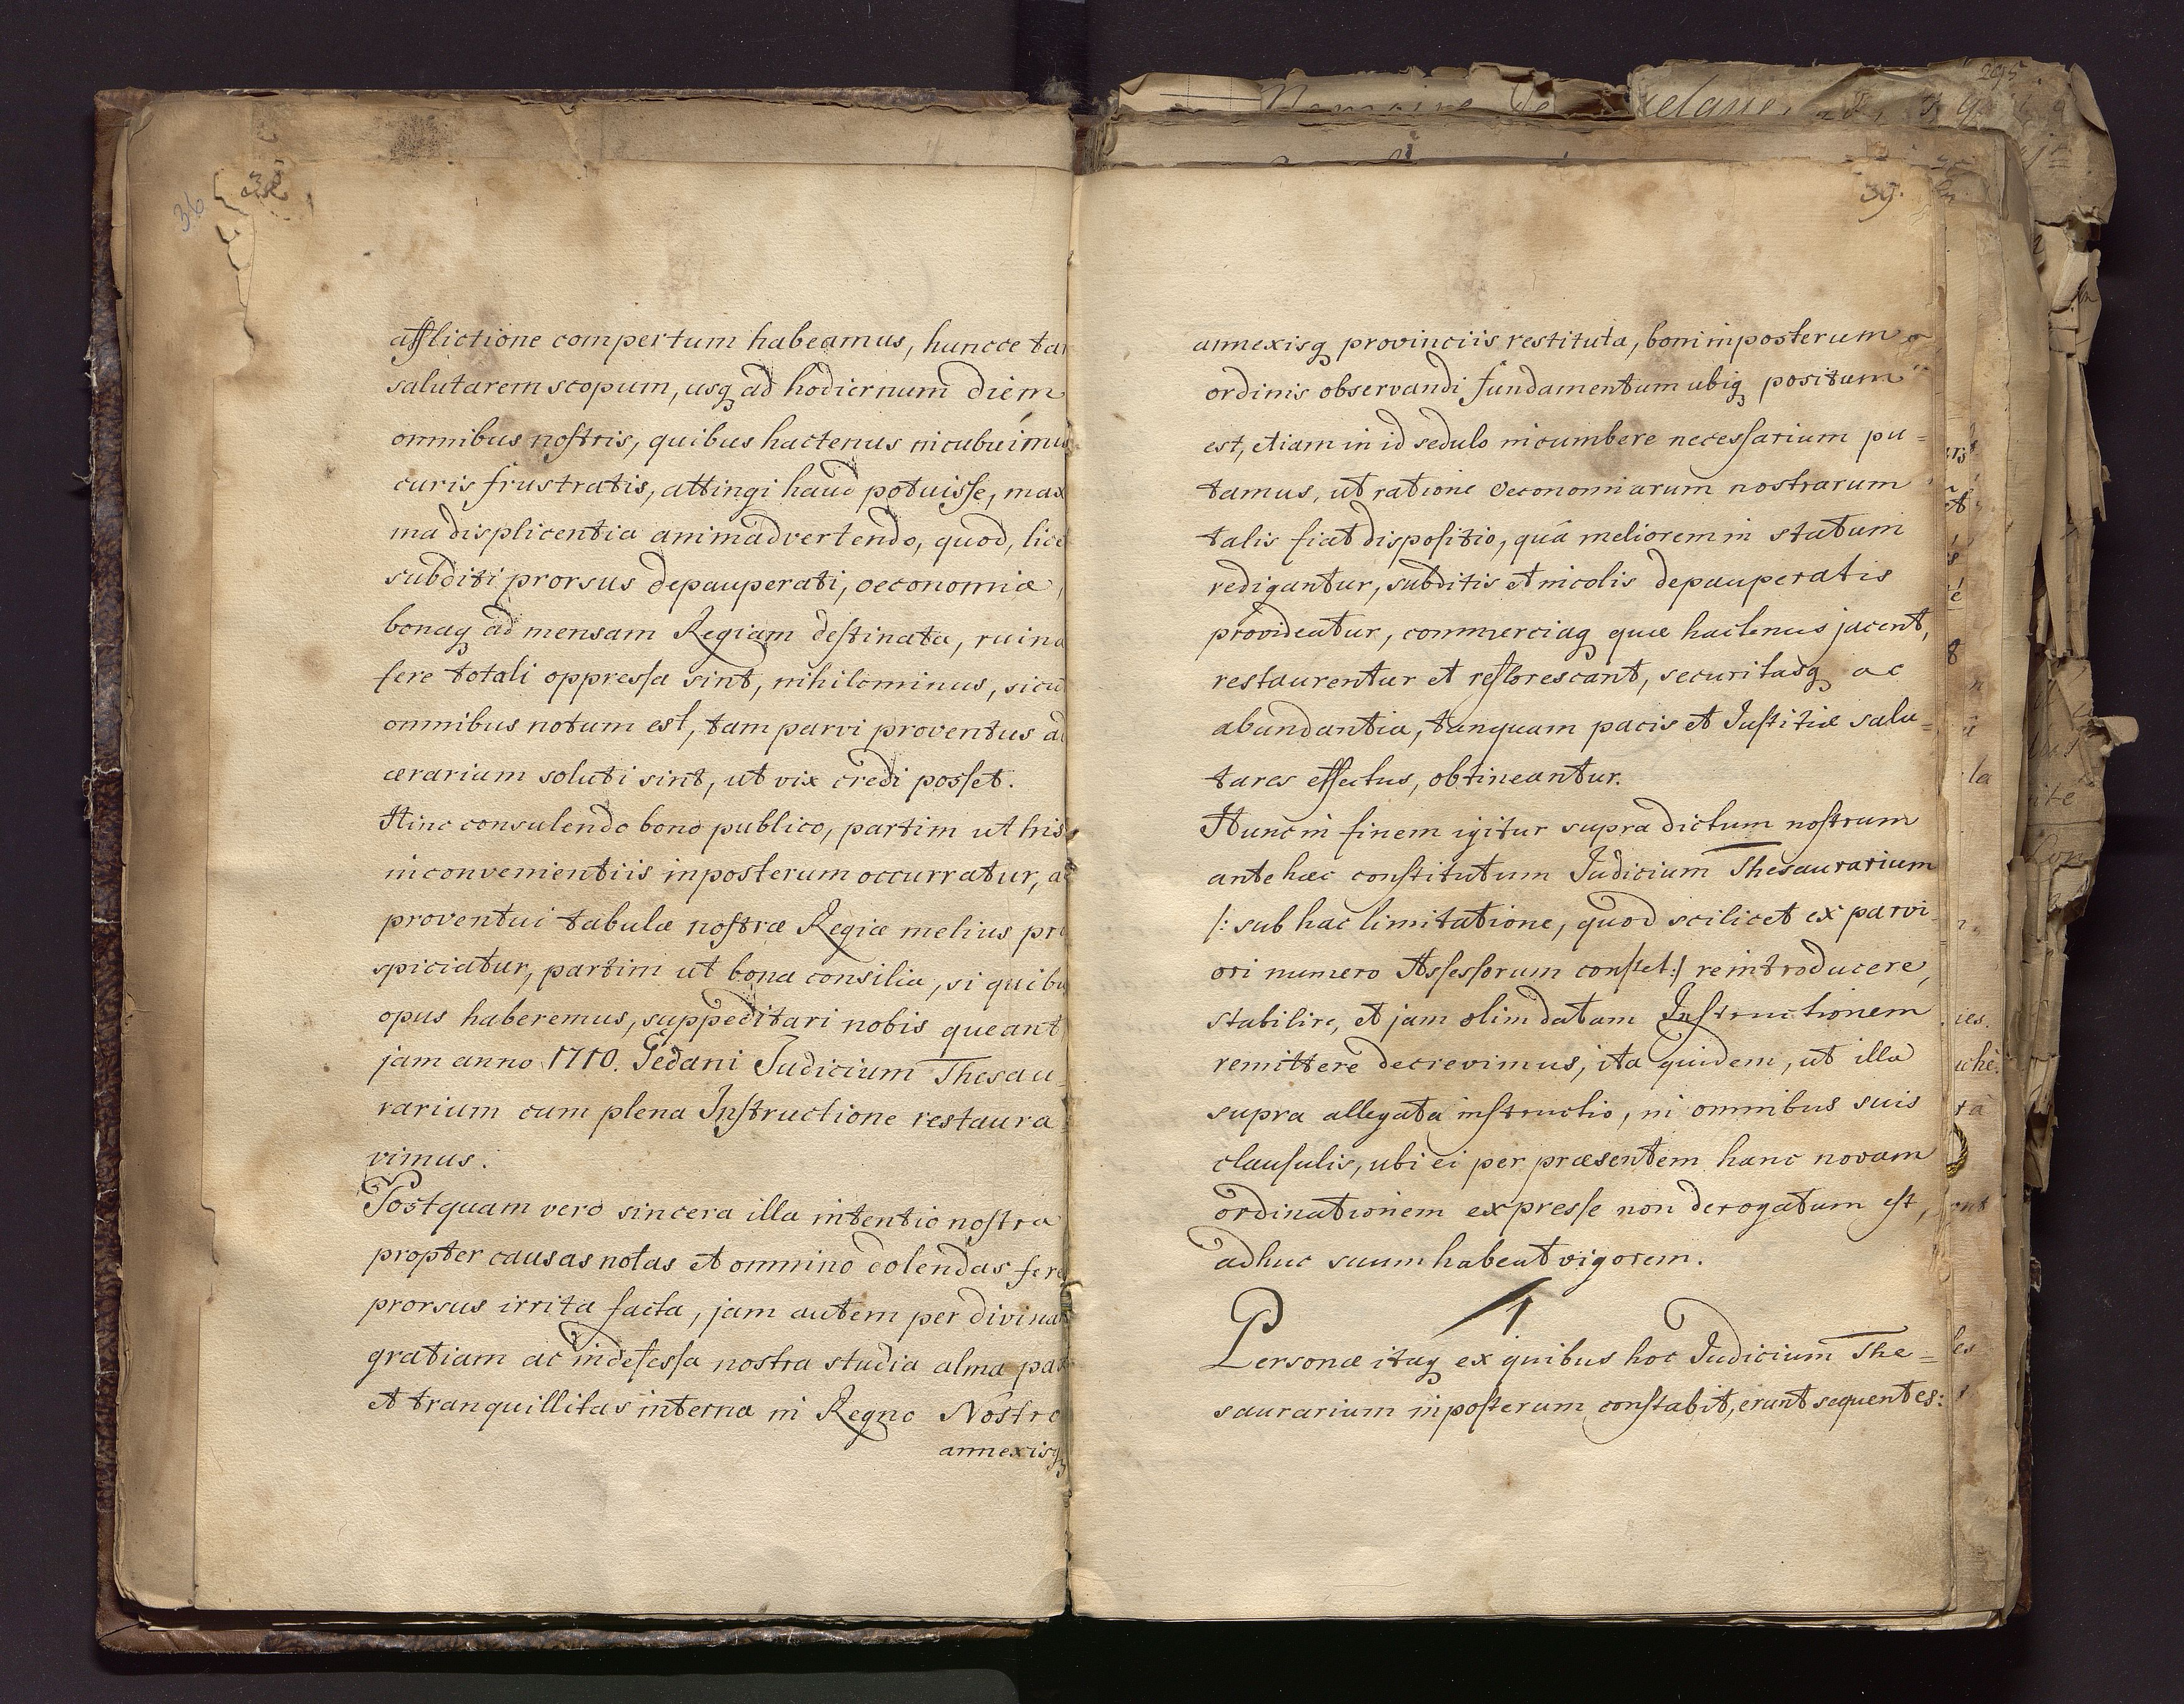 36
38
afflictione compertum habeamus, huncce tam
salutarem scopum, usq ad hodiernum diem
omnibus nostris, quibus hactenus incubuimus
curis frustratis, attingi haud potuisse, maxi
ma displicentia animadvertendo, quod, licet
subditi prorsus depauperati, oeconomiæ,
bonaq ad mensam Regiam destinata, ruina
fere totali oppressa sint, nihilominus, sicut
omnibus notum est, tam parvi proventus ad
ærarium soluti sint, ut vix credi posset.
Hinc consulendo bono publico, partim ut his
inconvenientiis inposterum occurratur, ac
proventui tabulæ nostræ Regiæ melius pro
spiciatur, partim ut bona consilia, si quibus
opus haberemus, suppeditari nobis queant
jam anno 1710. Gedani Judicium Thesau-
rarium cum plena Instructione restaura-
vimus.
Postquam vero sincera illa intentio nostra
propter causas notas et omnino dolendas fere
prorsus irrita facta, jam autem per divinam
gratiam ac indefessa nostra studia alma pax
et tranquillitas interna in Regno Nostro
annexisq
39.
annexisq provinciis restituta, boni inposterum
ordinis observandi fundamentum ubiq positum
est, etiam in id sedulo incumbere necessarium pu=
tamus, ut ratione Oeconomiarum nostrarum
talis fiat dispositio, quâ meliorem in statum
redigantur, subditis et incolis depauperatis
provideatur, commerciaq quæ hactenus jacent,
restaurentur et reflorescant, securitasq ac
abundantia, tanquam pacis et Justitiæ salu=
tares effectus, obtineantur.
Hunc in finem igitur supra dictum nostrum
ante hæc constitutum Judicium Thesaurarium
/: sub hac limitatione, quod scilicet ex parvi-
ori numero Assessorum constet :/ reintroducere,
stabilire, et jam olim datam Instructionem
remittere decrevimus, ita quidem, ut illa
supra allegata instructio, in omnibus suis
clausulis, ubi ei per præsentem hanc novam
ordinationem expresse non derogatum est,
adhuc suum habeat vigorem.
1
Personæ itaq ex quibus hoc Judicium The=
saurarium inposterum constabit, erunt sequentes: